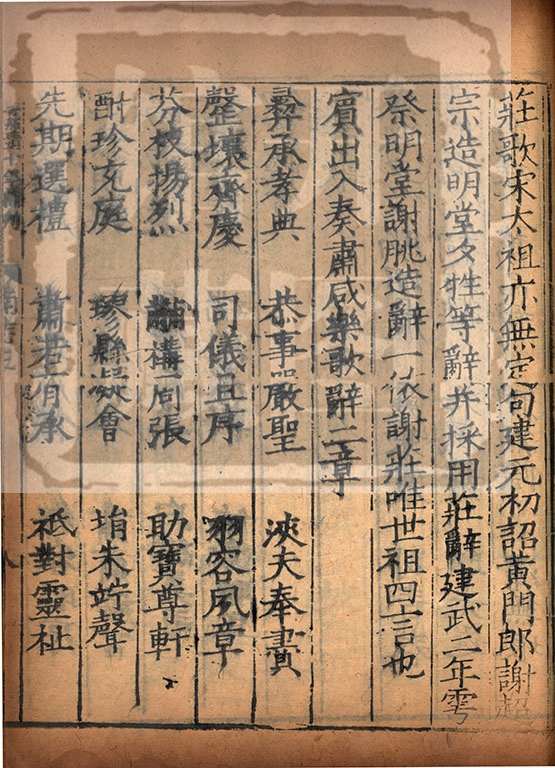 莊歌宋太祖亦無定句建元初詔黃門郎謝超
宗造明堂夕牲等辭并採用莊辭建武二年雩
祭明堂謝朓造辭一依謝莊唯世祖四言也
賓出入奏肅咸樂歌辭二章
彝承孝典 恭事嚴聖 浹天奉賮
罄壤齊慶 司儀且序 羽容夙章
芬枝揚烈 黼構周張 助寶尊軒
酎珍充庭 璆縣凝會 堉朱竚聲
先期選禮 肅若有承 祗對靈祉